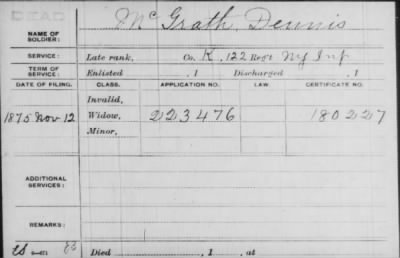 DEAD
NAME OF SOLDIER: McGrath, Dennis
SERVICE: Late rank, Co. K, 122 Reg't NY Inf
TERM OF SERVICE: Enlisted , 1 Discharged , 1
DATE OF FILING. CLASS. APPLICATION NO. LAW. CERTIFICATE NO.
Invalid,
1875 Nov 12 Widow, 223476 180227
Minor,
ADDITIONAL SERVICES:
REMARKS:
Died , 1 , at